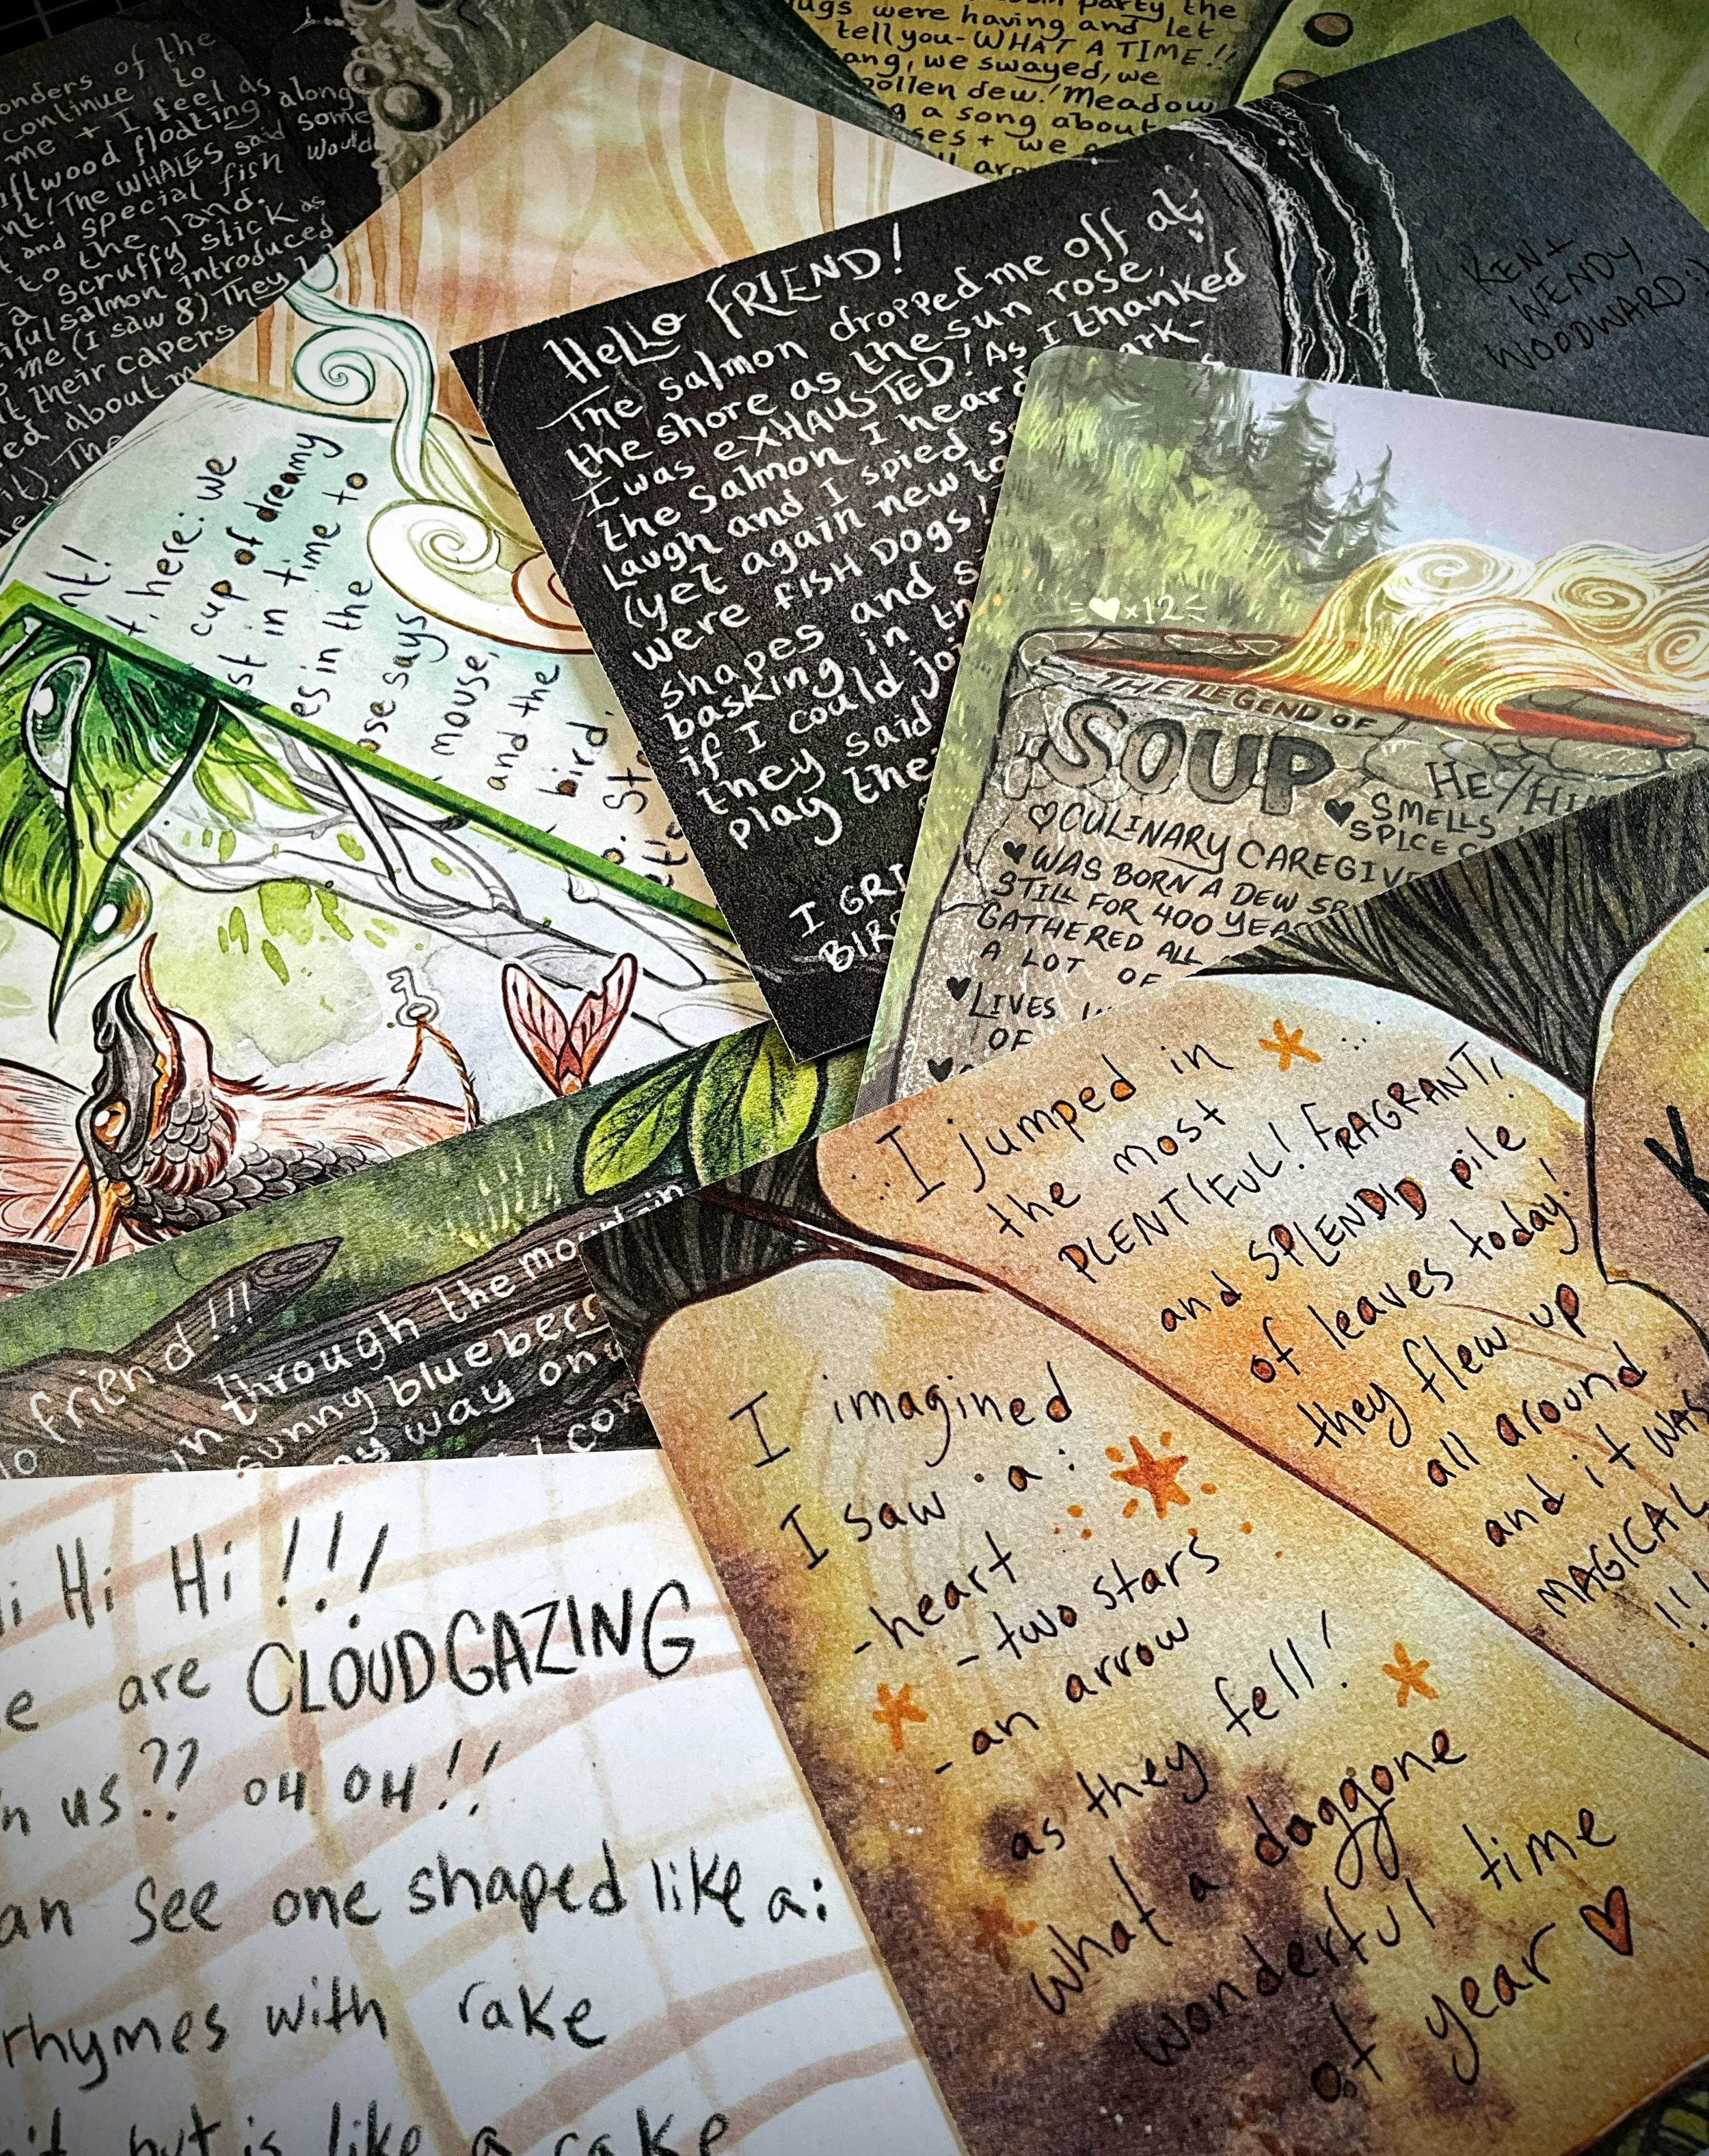 onders of the
continue to
me + I feel as
iftwood floating along
nt! The WHALES said some
t and special fish would
to the land.
a scruffy stick as
iful salmon introduced
me (I saw 8). They
t their capers
ed about m
it). The
party the
ugs were having and let
tell you - WHAT A TIME!!
ang, we swayed, we
pollen dew! Meadow
g a song about
ses + we
KEN +
WENDY
WOODWARD :)
HELLO FRIEND!
The salmon dropped me off at
the shore as the sun rose,
I was EXHAUSTED! As I thanked
the Salmon I heard ark-
Laugh and I spied s
(yet again new to
were FISH DOGS!
shapes and s
basking in th
if I could joi
they said
play the
I GRI
BIR
nt!
t, here: we
cup of dreamy
st in time to
es in the
ose says
mouse,
and the
bird.
o. Sto
=♥×12=
THE LEGEND OF
SOUP
HE/HI
♥ SMELLS
SPICE
♡ CULINARY CAREGIVE
♥ WAS BORN A DEW
STILL FOR 400 YEA
GATHERED ALL
A LOT OF
♥ LIVES
OF
lo friend!!!
un through the mountain
sunny blueberr
my way on
I jumped in
the most
PLENTIFUL! FRAGRANT,
and SPLENDID pile
of leaves today!
they flew up
all around
and it WAS
MAGICAL
!!!
K
I imagined
I saw a:
-heart
- two stars
- an arrow
as they fell!
what a doggone
wonderful time
of year ♡
Hi Hi Hi !!!
e are CLOUDGAZING
h us?? OH OH!!
an see one shaped like a:
rhymes with rake
n't but is like a rake